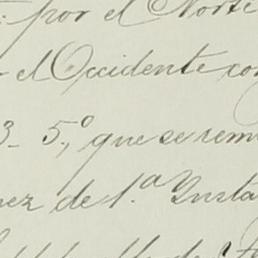 : por el Norte
el Occidente co
3_ 5.º, que se rem
ez de 1.ª Insta